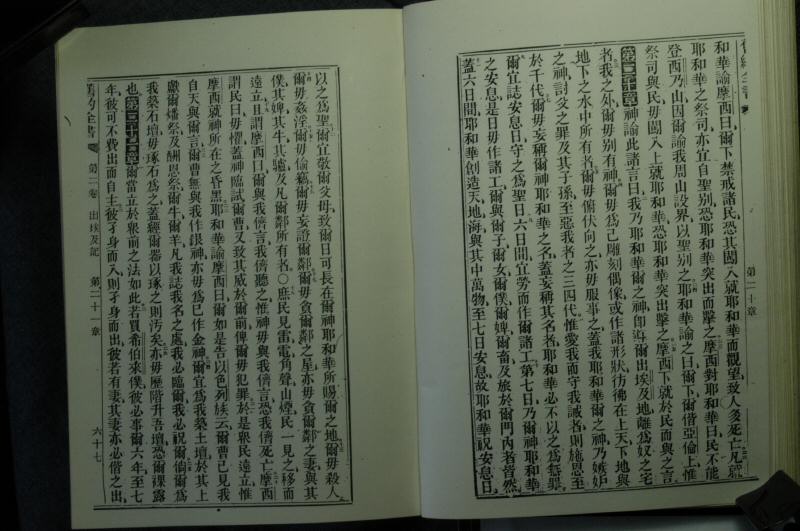 舊約全書
和華諭摩西曰爾下禁戒諸民恐其闖入就耶和華而觀望致人多死亡凡就
耶和華之祭司亦宜自聖別恐耶和華突出而擊之摩西對耶和華曰民不能
登西乃山因爾諭我周山設界以聖別之耶和華諭之曰爾下爾偕亞倫上惟
祭司與民毋闖入上就耶和華恐耶和華突出擊之摩西下就於民而與之言
第二十章神諭此諸言曰我乃耶和華爾之神即導爾出埃及地離為奴之宅
者我之外爾毋別有神爾毋為己雕刻偶像或作諸形狀彷彿在上天下地與
地下之水中所有者爾毋俯伏向之亦毋服事之蓋我耶和華爾之神乃嫉妒
之神討父之罪及其子孫至惡我者之三四代惟愛我而守我誡者則施恩至
於千代爾毋妄稱爾神耶和華之名蓋妄稱其名者耶和華必不以之為無罪
爾宜誌安息日守之為聖日六日間宜勞而作爾諸工第七日乃爾神耶和華
之安息是日毋作諸工爾與爾子爾女爾僕爾婢爾畜及旅於爾門內者皆然
蓋六日間耶和華創造天地海與其中萬物至七日安息故耶和華祝安息日
第二十章
以之為聖爾宜敬爾父母致爾日可長在爾神耶和華所賜爾之地爾毋殺人
爾毋姦淫爾毋偷竊爾毋妄證爾鄰爾毋貪爾鄰之屋亦毋貪爾鄰之妻與其
僕其婢其牛其驢及凡爾鄰所有者○庶民見雷電角聲山煙民一見之移而
遠立且謂摩西曰爾與我儕言我儕聽之惟神毋與我儕言恐我儕死亡摩西
謂民曰毋懼蓋神臨試爾曹又致其威於爾前俾爾毋犯罪於是眾民遠立惟
摩西就神所在之昏黑耶和華諭摩西曰爾如是告以色列族云爾曹已見我
自天與爾言爾曹無與我作銀神亦毋為己作金神爾宜為我築土壇於其上
獻爾燔祭及酬恩祭爾牛爾羊凡我誌我名之處我必臨爾我必祝爾倘爾為
我築石壇毋琢石為之蓋經爾器以琢之則污矣亦毋歷階升吾壇恐爾裸露
也第二十一章爾當立於眾前之法如此若買希伯來僕彼必事爾六年至七
年彼可不費出而自主彼孑身而入則孑身而出彼若有妻其妻亦必偕之出
舊約全書 第二卷 出埃及記 第二十一章 六十七